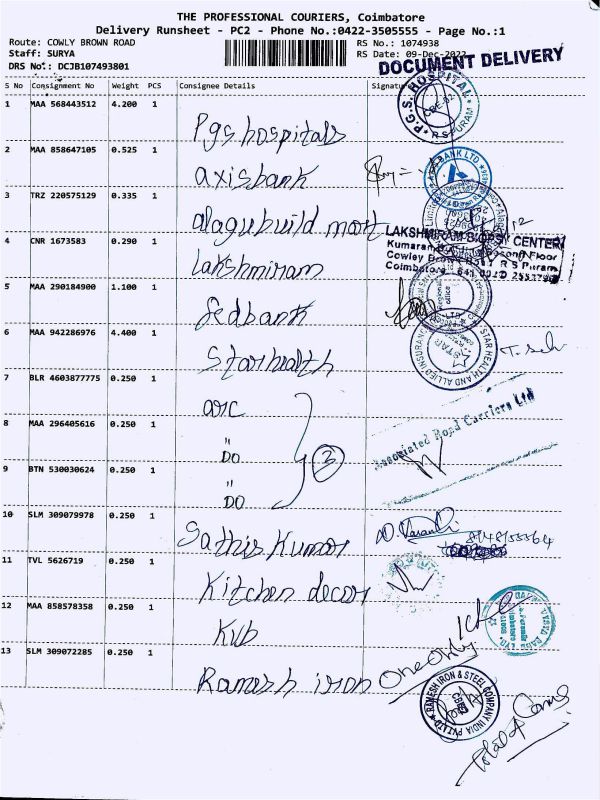 THE PROFESSIONAL COURIERS, Coimbatore
Delivery Runsheet - PC2 - Phone No.:0422-3505555 - Page No.:1
Route: COWLY BROWN ROAD
RS No.: 1074938
Staff: SURYA
RS Date: 09-Dec-2022
DRS No.: DCJB107493801
DOCUMENT DELIVERY
S No Consignment No Weight PCS Consignee Details Signature
1 MAA 568443512 4.200 1 Pgs hospitals
P.G.S. HOSPITAL R S PURAM
2 MAA 858647105 0.525 1 axisbank
AXIS BANK LTD.
3 TRZ 220575129 0.335 1 alagubuild mart
4 CNR 1673583 0.290 1 Lakshmiram
LAKSHMIRAM BIOPSY CENTER
Second Floor
Cowley Brown R S Puram
Coimbatore
5 MAA 290184900 1.100 1 fedbank
6 MAA 942286976 4.400 1 Starhealth
STAR HEALTH AND ALLIED INSURANCE
STAR
7 BLR 4603877775 0.250 1 arc
Associated Road Carriers Ltd
8 MAA 296405616 0.250 1 " DO
3
9 BTN 530030624 0.250 1 " DO
10 SLM 309079978 0.250 1 Sathis Kumar
11 TVL 5626719 0.250 1 Kitchen decor
12 MAA 858578358 0.250 1 KVB
13 SLM 309072285 0.250 1 Ramesh iron
One Only
RAMESH IRON & STEEL COMPANY INDIA PVT LTD